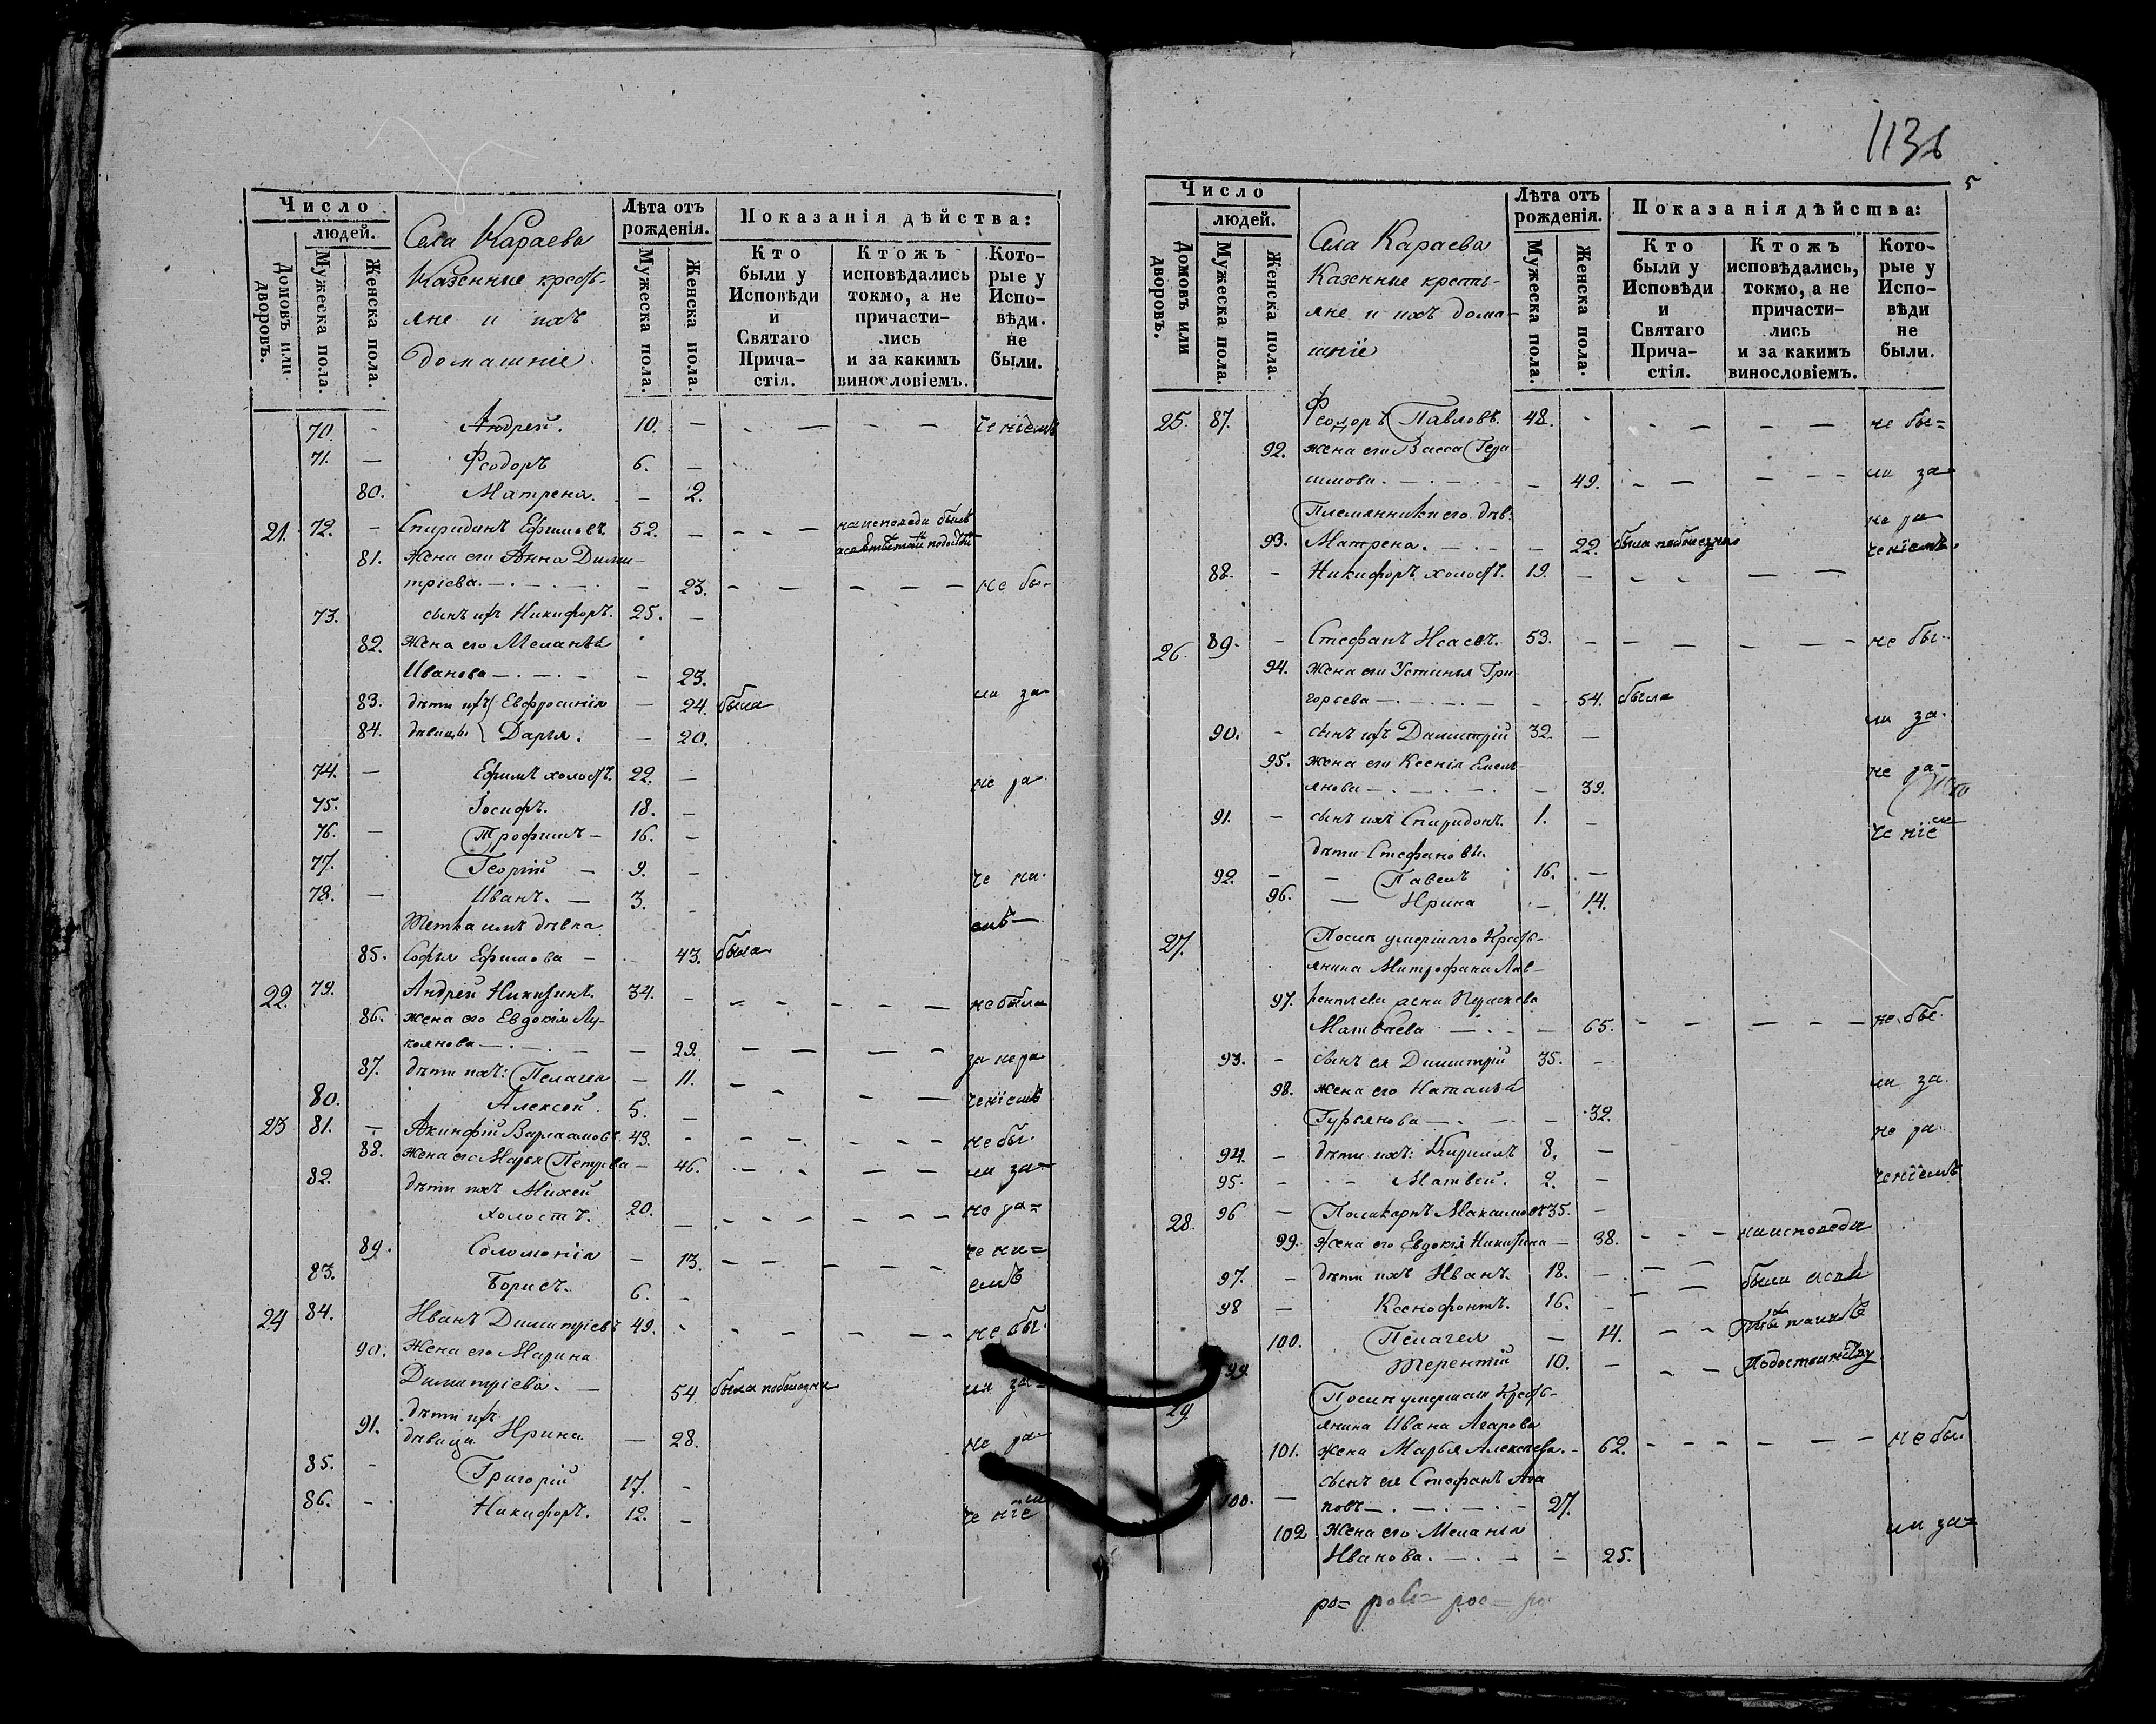 Число
людей.
Домовъ или дворовъ.
Мужеска пола.
Женска пола.
Села Караева
Казенные кресть-
яне и ихъ
домашніе.
Лѣта отъ рожденія.
Мужеска пола.
Женска пола.
Показанія дѣйства:
Кто были у Исповѣди и Святаго Прича- стія.
Ктожъ исповѣдались токмо, а не причасти- лись и за какимъ винословіемъ.
Кото- рые у Испо- вѣди. не были.
70. - Андрей. 10. — ченіемъ
71. — Феодоръ 6. —
80. Матрена. - 2.
21. 72. - Спиридонъ Ефимовъ. 52. — на исповеди былъ
81. Жена его Анна Дими-
тріева. — - 23. не бы-
73. сынъ ихъ Никифоръ. 25. —
82. Жена его Меланья
Иванова — - 23.
83. дѣти ихъ Евфросинія — 24. была ли за-
84. дѣвицы Дарья. — 20.
74. — Ефимъ холостъ. 22. — не ра-
75. Іосифъ. 18. —
76. — Трофимъ — 16. —
77. Георгій — 9. — че ні-
78. — Иванъ. — 3. -
Тетка имъ дѣвка емъ —
85. Софья Ефимова — 43. была
22. 79. Андрей Никитинъ. 34. - не были
86. жена его Евдокія Лу-
коянова — - 29. за нера
87. дѣти ихъ: Пелагея — 11.
80. Алексей. 5. — ченіемъ
23 81. — Акинфій Варламовъ. 43. - не бы-
88. жена его Марья Петрова — 46. ли за-
82. дѣти ихъ Михей
холостъ. 20. — не ра=
89. Соломонія — 13. че ні=
83. Борисъ. 6. - емъ
24 84. Иванъ Димитріевъ 49. - не бы-
90. Жена его Марина
Димитріева. — 54. была по болезни ли за-
91. дѣти ихъ
дѣвица Ирина — 28. не ра-
85. - Григорій 17. -
86. - Никифоръ. 12. — че ніе
1136
5
Число
людей.
Домовъ или дворовъ.
Мужеска пола.
Женска пола.
Села Караева
Казенные кресть-
яне и ихъ дома-
шніе
Лѣта отъ рожденія.
Мужеска пола.
Женска пола.
Показанія дѣйства:
Кто были у Исповѣди и Святаго Прича- стія.
Ктожъ исповѣдались, токмо, а не причасти- лись и за какимъ винословіемъ.
Кото- рые у Испо- вѣди не были.
25. 87. Феодоръ Павловъ. 48. - не бы=
92. жена его Васса Гера
симова. — - 49. ли за-
Племянники его дѣв. не ра
93. Матрена. — - 22. была по болезни ченіемъ.
88. - Никифоръ холостъ. 19. —
26. 89. - Стефанъ Исаевъ. 53. - не бы-
94. жена его Устинья Гри-
горьева — - 54. была
90. - сынъ ихъ Димитрій 32. — ли за-
95. жена его Ксенія Емель
янова — — 39. не ра-
91. - сынъ ихъ Спиридонъ. 1. — че ніе
дѣти Стефановы.
92. - Павелъ 16. —
96. — Ирина - 14.
27. После умершаго Кресть-
янина Митрофана Лав-
97. рентьева
Матвѣева — — 65. не бы-
93. - сынъ ея Димитрій 35. -
98. жена его Наталья ли за-
Гурьянова — — 32.
94. - дѣти ихъ: Кириллъ 8. — не ра-
95. - Матвей. 2. — ченіемъ
28. 96 — Поликарпъ Максимовъ 35. -
99. жена его Евдокія Никитина — 38. на исповеди
97. - дѣти ихъ Иванъ. 18. - были
98 — Ксенофонтъ. 16. -
100. Пелагея — 14.
99 Терентій 10. —
29 После умершаго Кресть-
янина Ивана Агапова
101. жена Марья Алексеева. - 62. не бы-
сынъ ея Стефанъ Ага
100. — повъ — 27.
102 жена его Меланія ли за=
Иванова. — - 25.